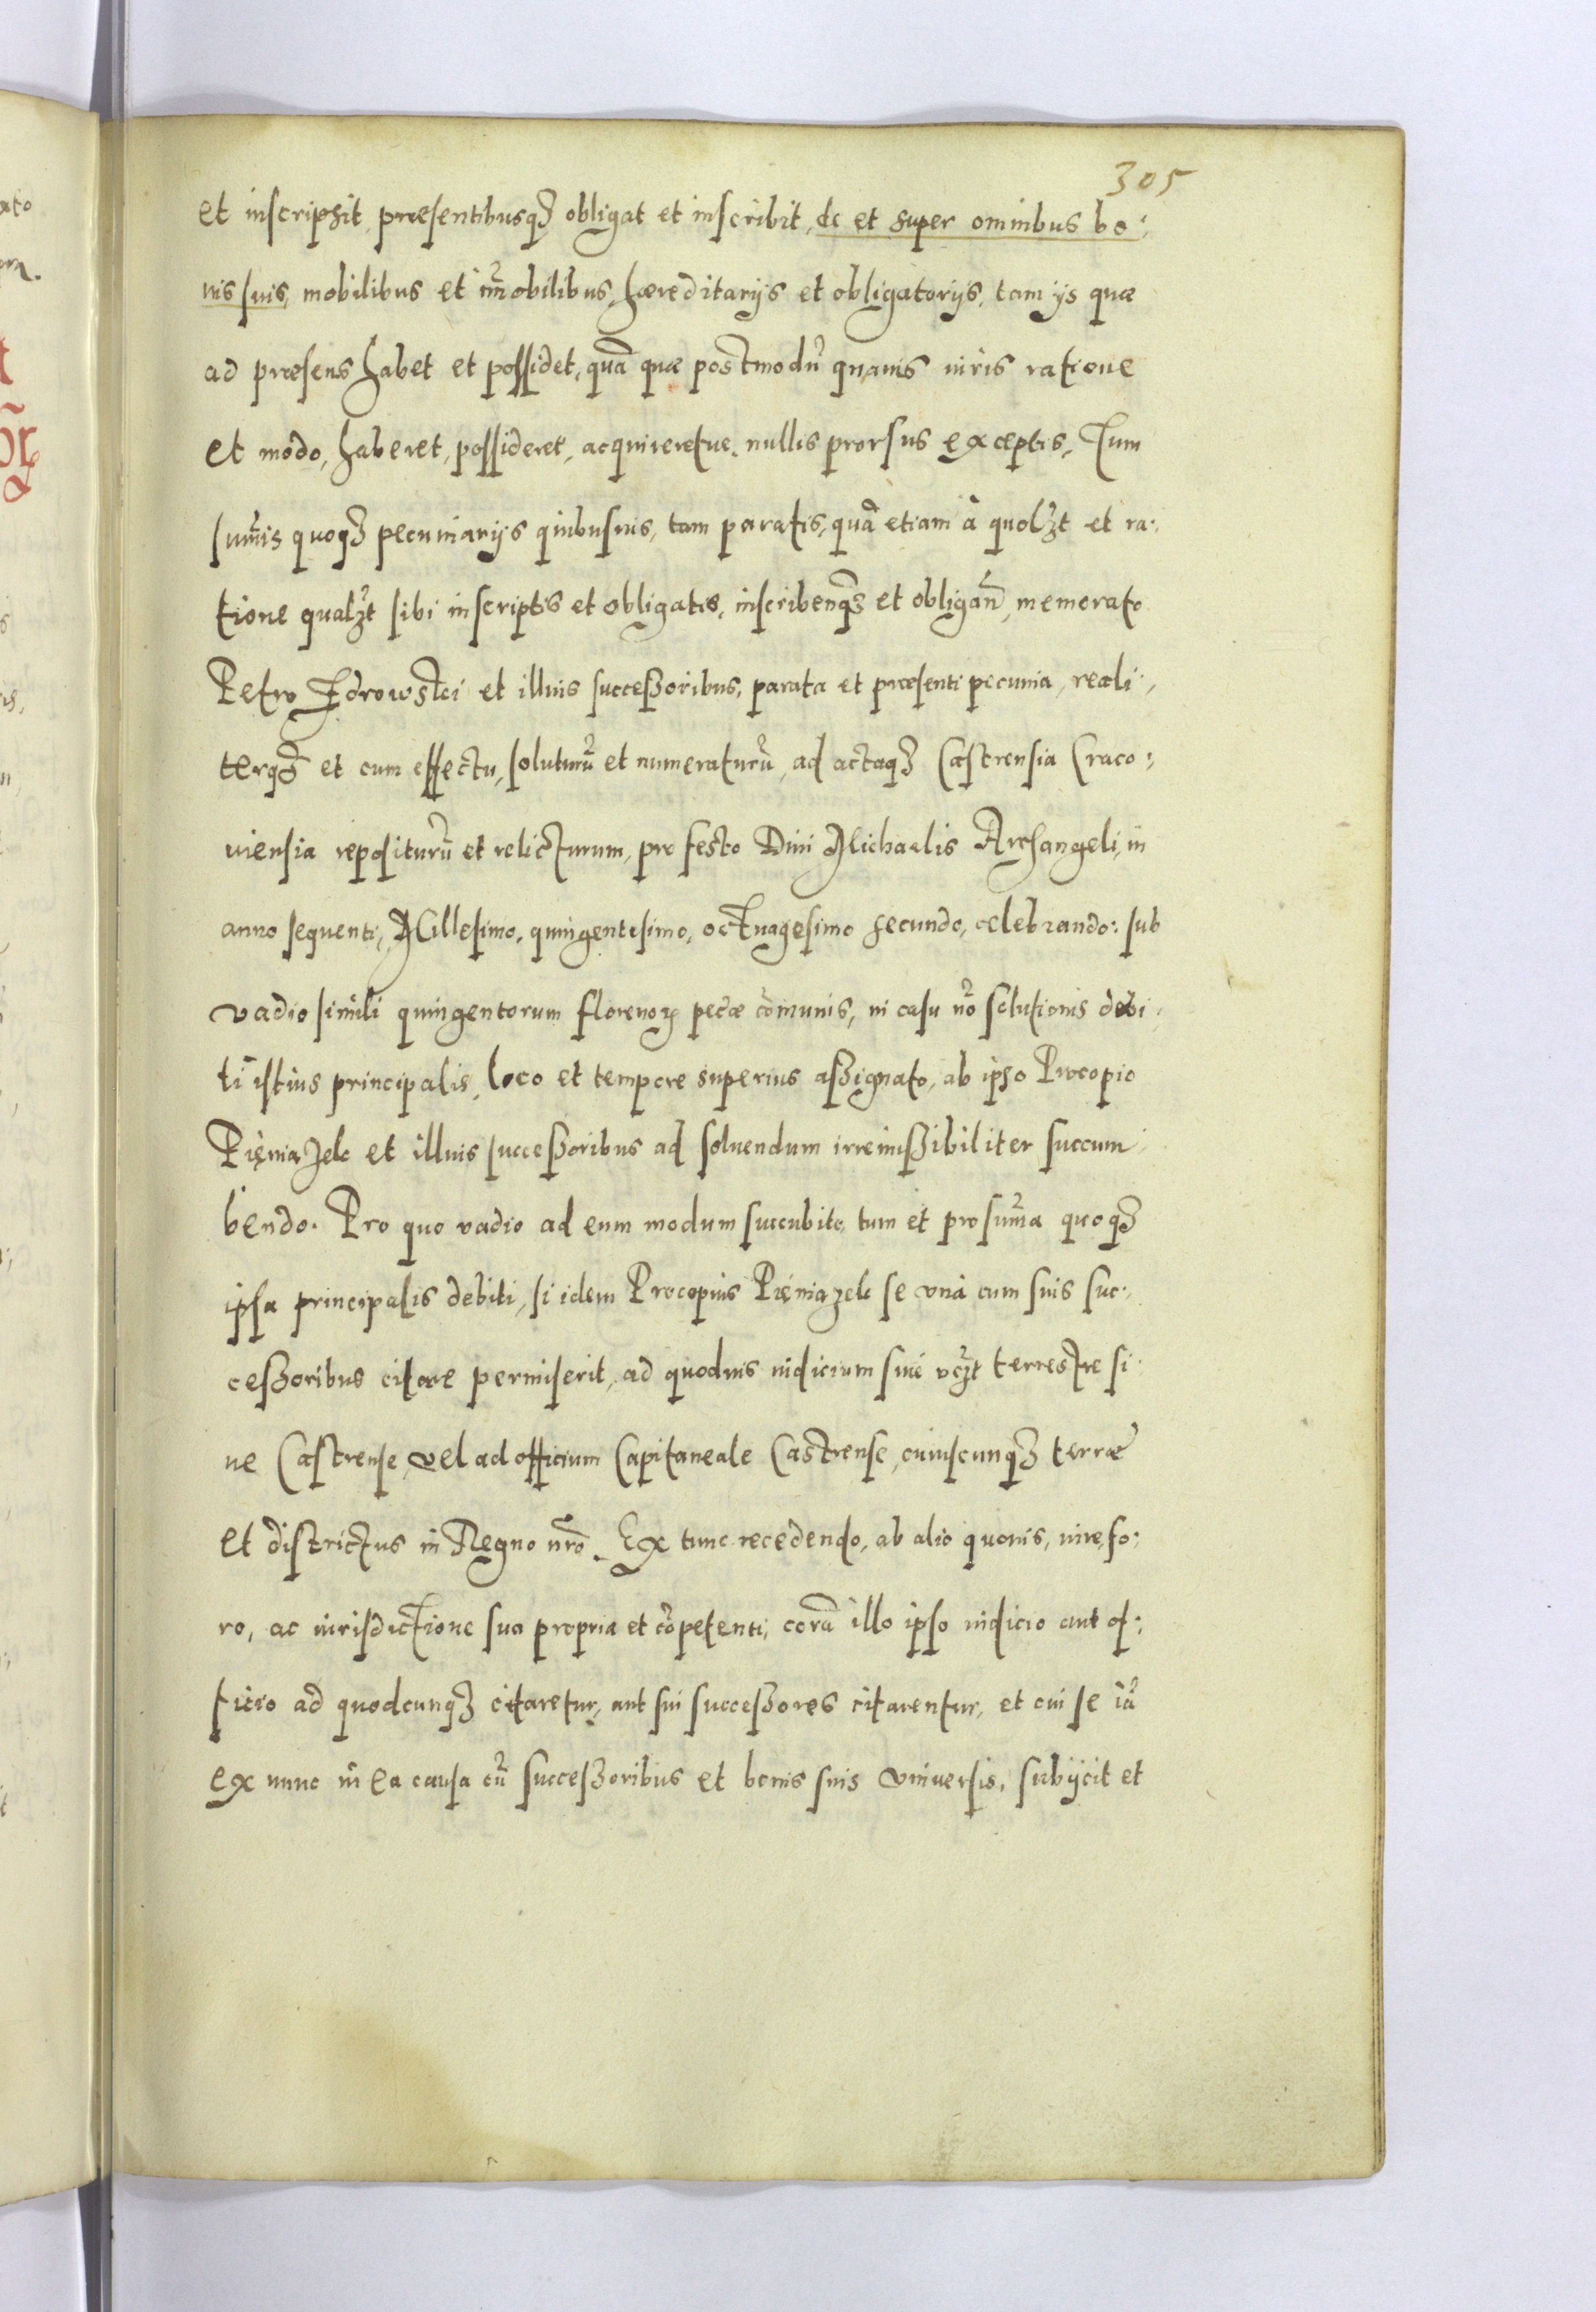 305
et inscripsit, præsentibusqꝫ obligat et inscribit, de et super omnibus bo:
nis suis, mobilibus et im̃obilibus, hæreditarijs et obligatorijs, tam ijs quæ
ad præsens habet et possidet, quã quæ postmodũ quauis iuris ratione
et modo, haberet, possideret, acquireretue, nullis prorsus exceptis, Tum
sum̃is quoqꝫ pecuniarijs quibusuis, tam paratis, quã etiam à quolꝫt et ra:
tione qualꝫt sibi inscriptis et obligatis, inscribenqꝫ et obligañ, memorato
Petro Zdrowski et illius successoribus, parata et præsenti pecunia, reali:
terqꝫ et cum effectu, soluturũ et numeraturũ, ad actaqꝫ Castrensia Craco:
uiensia repositurũ et relicturum, pro festo Diui Michaelis Archangeli, in
anno sequenti, Millesimo, quingentesimo, octuagesimo secundo, celebrando: sub
vadio simili quingentorum florenoꝝ pecæ cõmunis, in casu nõ solutionis debi:
ti istius principalis, loco et tempore superius assignato, ab ipso Procopio
Pięniazek et illius successoribus ad soluendum irremissibiliter succum:
bendo. Pro quo vadio ad eum modum succubito, tum et pro sum̃a quoqꝫ
ipsa principalis debiti, si idem Procopius Pięniazek se vnà cum suis suc:
cessoribus citare permiserit, ad quoduis iudicium siue vꝫt terrestre si:
ue Castrense, vel ad officium Capitaneale Castrense, cuiuscunqꝫ terræ
et districtus in Regno nr̃o. Ex tunc recedendo, ab alio quouis, iure, fo:
ro, ac iurisdictione sua propria et cõpetenti, corã illo ipso iudicio aut of:
ficio ad quodcunqꝫ citaretur, aut sui successores citarentur, et cui se iã
ex nunc in ea causa cũ successoribus et bonis suis vniuersis, subijcit et